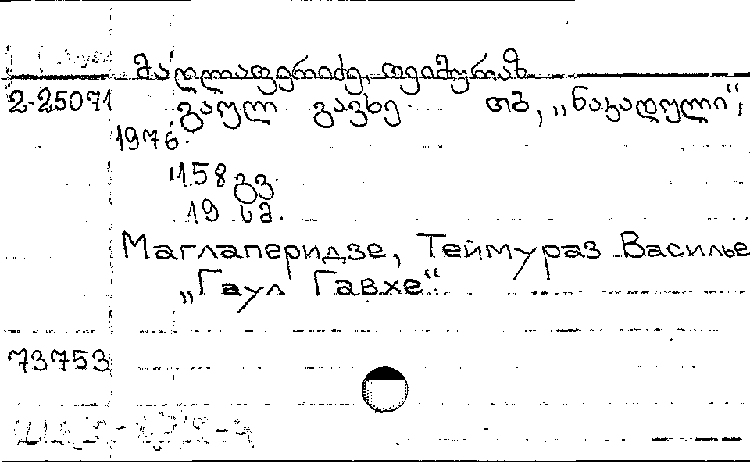 მაღლაფერიძე, თეიმურაზ
2-25071 გაულ გავხე თბ, „ნაკადული“,
1976.
158 გვ.
19 სმ.
Маглаперидзе, Теймураз Василье
„Гаул Гавхе“
73753